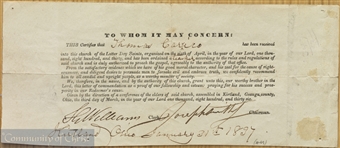 TO WHOM IT MAY CONCERN:
THIS Certifies that Thomas Carrico has been received
into this church of the Latter Day Saints, organized on the sixth of April, in the year of our Lord, one
thousand, eight hundred, and thirty, and has been ordained according to the rules and regulations of
said church and is duly authorized to preach the gospel, agreeably to the authority of that office.
From the satisfactory evidence which we have of his good moral character, and his zeal for the cause of right-
eousness, and diligent desire to persuade men to forsake evil and embrace truth, we confidently recommend
him to all candid and upright people, as a worthy member of society.
We, therefore, in the name, and by the authority of this church, grant unto this, our worthy brother in the
Lord, this letter of commendation as a proof of our fellowship and esteem: praying for his success and pros-
perity in our Redeemer's cause.
Given by the direction of a conference of the elders of said church, assembled in Kirtland, Geauga county,
Ohio, the third day of March, in the year of our Lord one thousand, eight hundred, and thirty six.
F. G. Williams Joseph Smith
Kirtland Ohio January 21st 1837
Community of Christ